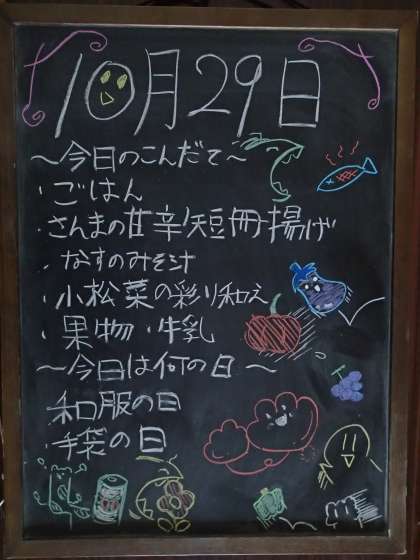 10月29日
～今日のこんだて～
・ごはん
・さんまの甘辛短冊揚げ
・なすのみそ汁
・小松菜の彩り和え
・果物・牛乳
～今日は何の日～
和服の日
・手袋の日